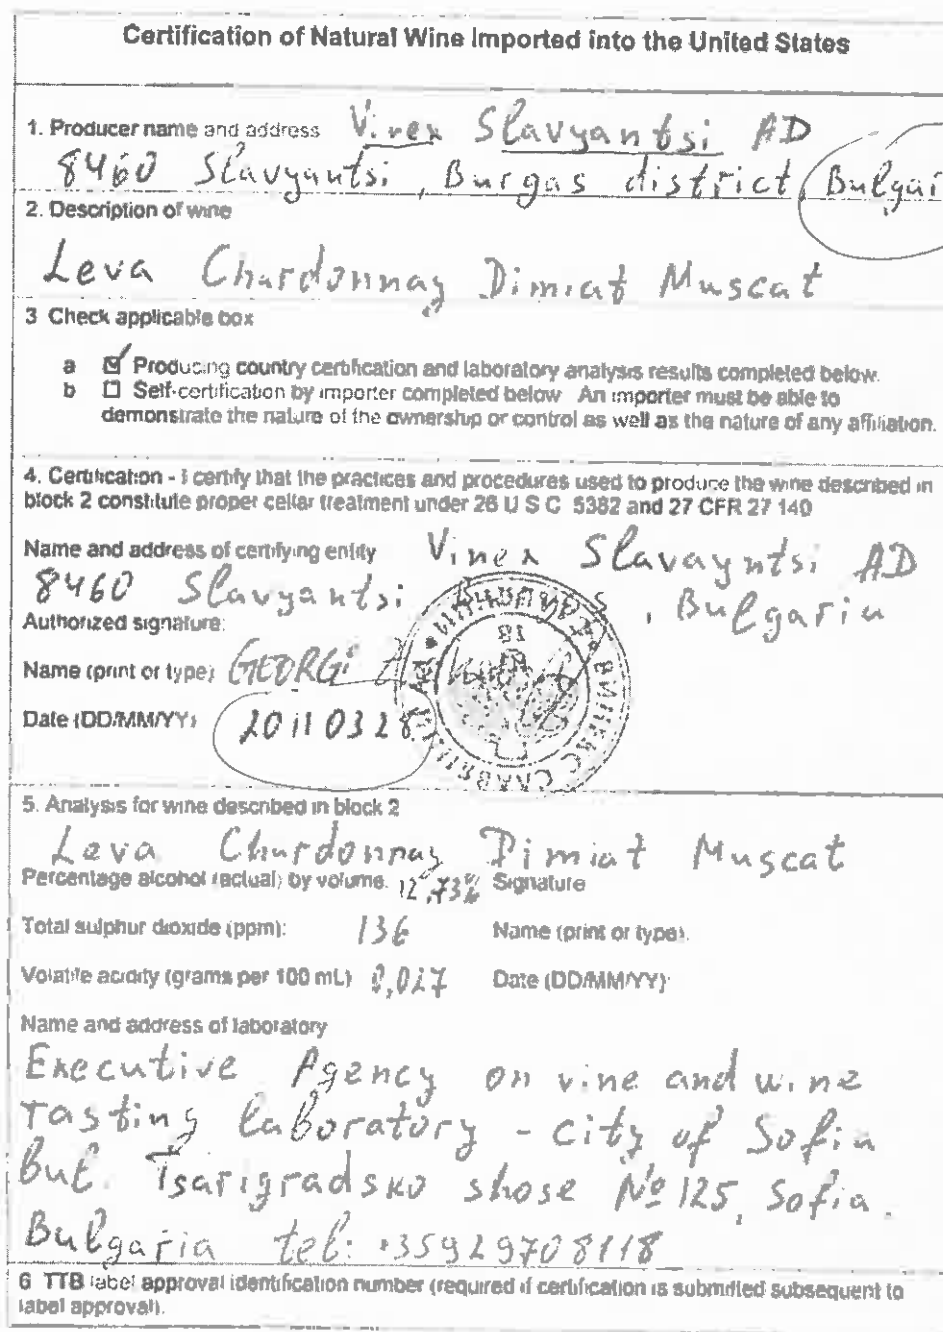 Certification of Natural Wine Imported into the United States
1. Producer name and address Vinex Slavyantsi AD
8460 Slavyantsi, Burgas district, Bulgar
2. Description of wine
Leva Chardonnay Dimiat Muscat
3 Check applicable box
a ☑ Producing country certification and laboratory analysis results completed below.
b ☐ Self-certification by importer completed below An importer must be able to
demonstrate the nature of the ownership or control as well as the nature of any affiliation.
4. Certification - I certify that the practices and procedures used to produce the wine described in
block 2 constitute proper cellar treatment under 26 U S C 5382 and 27 CFR 27 140
Name and address of certifying entity Vinex Slavayntsi AD
8460 Slavyantsi, Bulgaria
Authorized signature:
Name (print or type) GEORGi
Date (DD/MM/YY) 20110328
5. Analysis for wine described in block 2
Leva Chardonnay Dimiat Muscat
Percentage alcohol (actual) by volume. 12,73% Signature
Total sulphur dioxide (ppm): 136 Name (print or type).
Volatile acidity (grams per 100 mL) 0,027 Date (DD/MM/YY)
Name and address of laboratory
Executive Agency on vine and wine
Tasting laboratory - city of Sofia
Bul. Tsarigradsko shose № 125, Sofia.
Bulgaria tel: +35929708118
6 TTB label approval identification number (required if certification is submitted subsequent to
label approval).